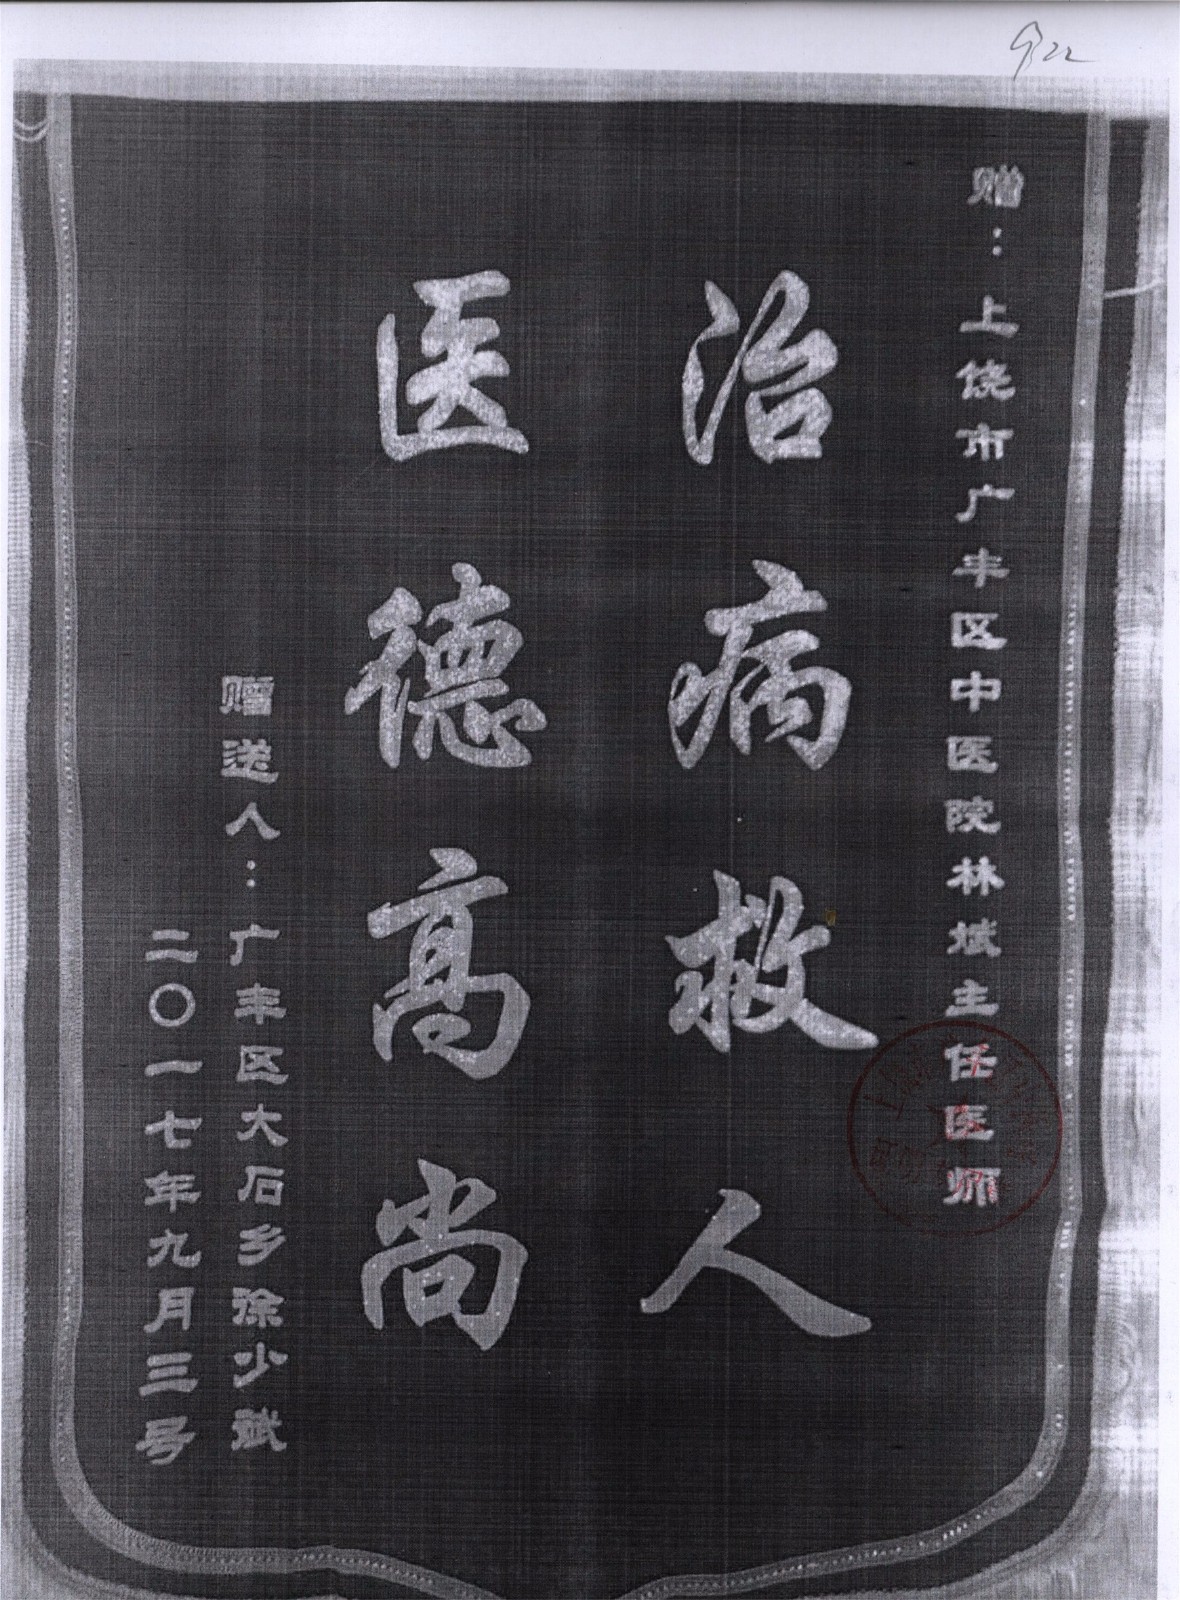 赠：上饶市广丰区中医院林斌主任医师
治病救人
医德高尚
赠送人：广丰区大石乡徐少斌
二〇一七年九月三号